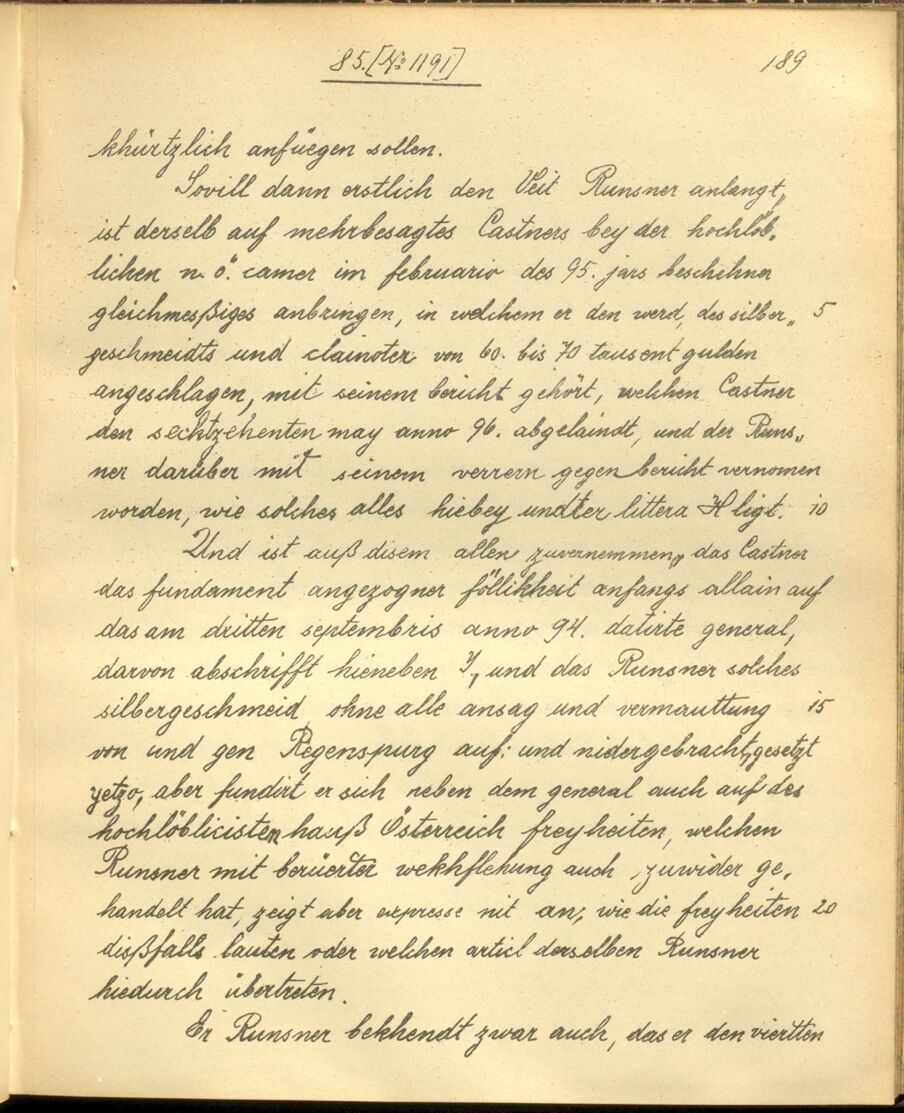 85. [No 1191]
189
khürtzlich anfüegen sollen.
Sovill dann erstlich den Veit Runsner anlangt,,
ist derselb auf mehrbesagtes Castners bey der hochlöb,
lichen n. ö. camer im februario des 95. jars beschehner
gleichmeßiges anbringen, in welchem er den werd, des silber,, 5
geschmeidts und clainoter von 60. bis 70 tausent gulden
angeschlagen, mit seinem bericht gehört, welchen Castner
den sechtzehenten may anno 96. abgelaindt, und der Runs,,
ner darüber mit seinem verrern gegen bericht vernomen
worden, wie solches alles hiebey undter littera H ligt. 10
Und ist auß disem allen zuvernemmen,, das Castner
das fundament angezogner föllikheit anfangs allain auf
das am dritten septembris anno 94. datirte general,
darvon abschrifft hieneben J, und das Runsner solches
silbergeschmeid ohne alle ansag und vermauttung 15
von und gen Regenspurg auf: und nidergebracht,, gesetzt
yetzo, aber fundirt er sich neben dem general auch auf des
hochlöblicisten hauß Österreich freyheiten, welchen
Runsner mit berüerter wekhflehung auch zuwider ge,
handelt hat, zeigt aber expresse nit an, wie die freyheiten 20
dißfalls lauten oder welchen articl derselben Runsner
hiedurch übertreten.
Er Runsner bekhendt zwar auch, das er den viertten